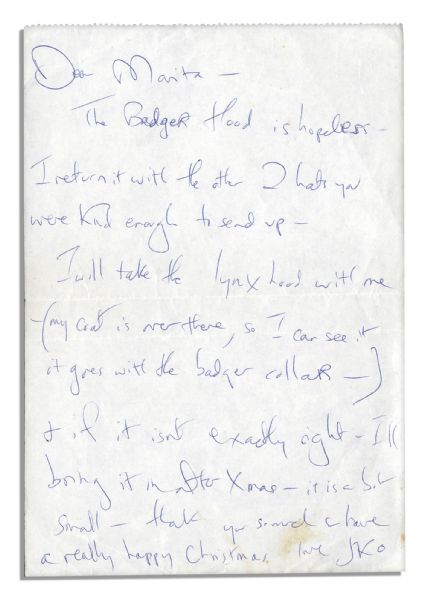 Dear Marita —
The Badger Hood is hopeless —
I return it with the other 2 hats you
were kind enough to send up —
I will take the lynx hood with me
— (my coat is over there, so I can see it
it goes with the badger collar —)
+ if it isn't exactly right - I'll
bring it in after Xmas — it is a bit
small — thank you so much & have
a really happy Christmas. love JKO